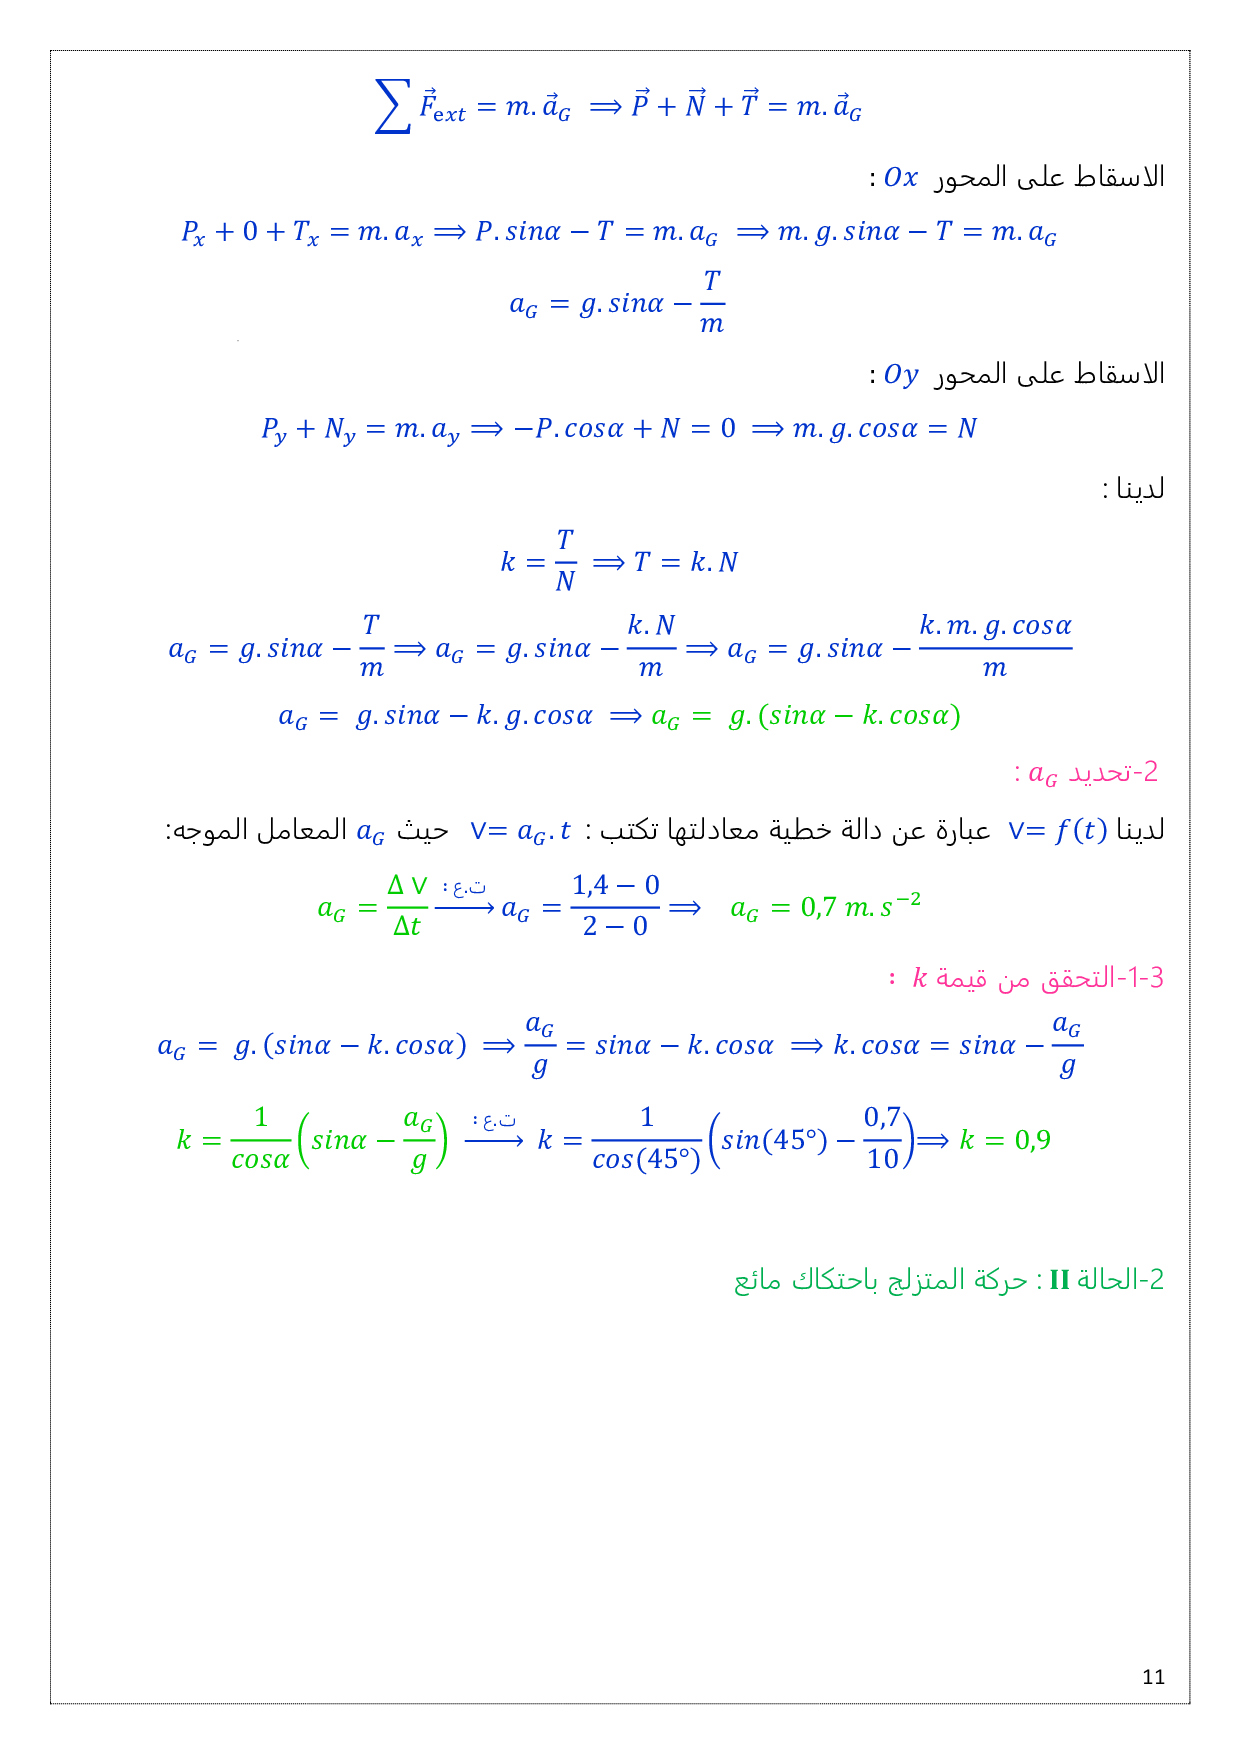 ∑ F⃗ext = m. a⃗G ⟹ P⃗ + N⃗ + T⃗ = m. a⃗G
الاسقاط على المحور Ox :
Px + 0 + Tx = m. ax ⟹ P. sinα − T = m. aG ⟹ m. g. sinα − T = m. aG
aG = g. sinα − T/m
الاسقاط على المحور Oy :
Py + Ny = m. ay ⟹ −P. cosα + N = 0 ⟹ m. g. cosα = N
لدينا :
k = T/N ⟹ T = k. N
aG = g. sinα − T/m ⟹ aG = g. sinα − k. N/m ⟹ aG = g. sinα − k. m. g. cosα/m
aG = g. sinα − k. g. cosα ⟹ aG = g. (sinα − k. cosα)
2-تحديد aG :
لدينا v= f(t) عبارة عن دالة خطية معادلتها تكتب : v= aG. t حيث aG المعامل الموجه:
aG = Δ v/Δt ت.ع : ⟶ aG = (1,4 − 0)/(2 − 0) ⟹ aG = 0,7 m. s⁻²
3-1-التحقق من قيمة k :
aG = g. (sinα − k. cosα) ⟹ aG/g = sinα − k. cosα ⟹ k. cosα = sinα − aG/g
k = 1/cosα (sinα − aG/g) ت.ع : ⟶ k = 1/cos(45°) (sin(45°) − 0,7/10) ⟹ k = 0,9
2-الحالة II : حركة المتزلج باحتكاك مائع
11